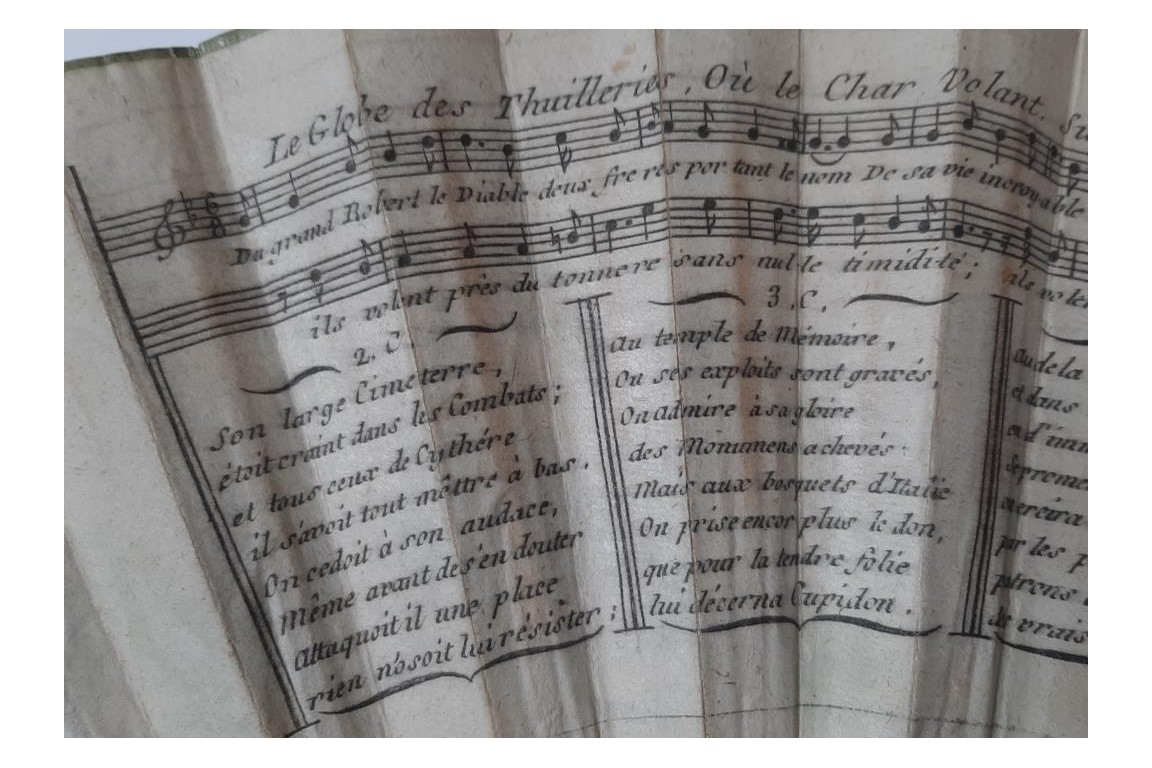 Le Globe des Thuilleries, Où le Char Volant. Su
Du grand Robert le Diable deux freres portant le nom De sa vie incroyable
ils volent près du tonnere sans nulle timidité; ils volen
2. C.
Son large Cimeterre,
étoit craint dans les Combats;
et tous ceux de Cythére
il savoit tout mêttre à bas.
On cedoit à son audace,
Même avant de s'en douter
Attaquoit il une place
rien n'osoit lui résister;
3. C.
Au temple de Mémoire,
Ou ses exploits sont gravés,
On admire à sa gloire
des Monumens achevés.
Mais aux bosquets d'Italie
On prise encor plus le don,
que pour la tendre folie
lui décerna Cupidon.
au dela
et dans
par les p
de vrais